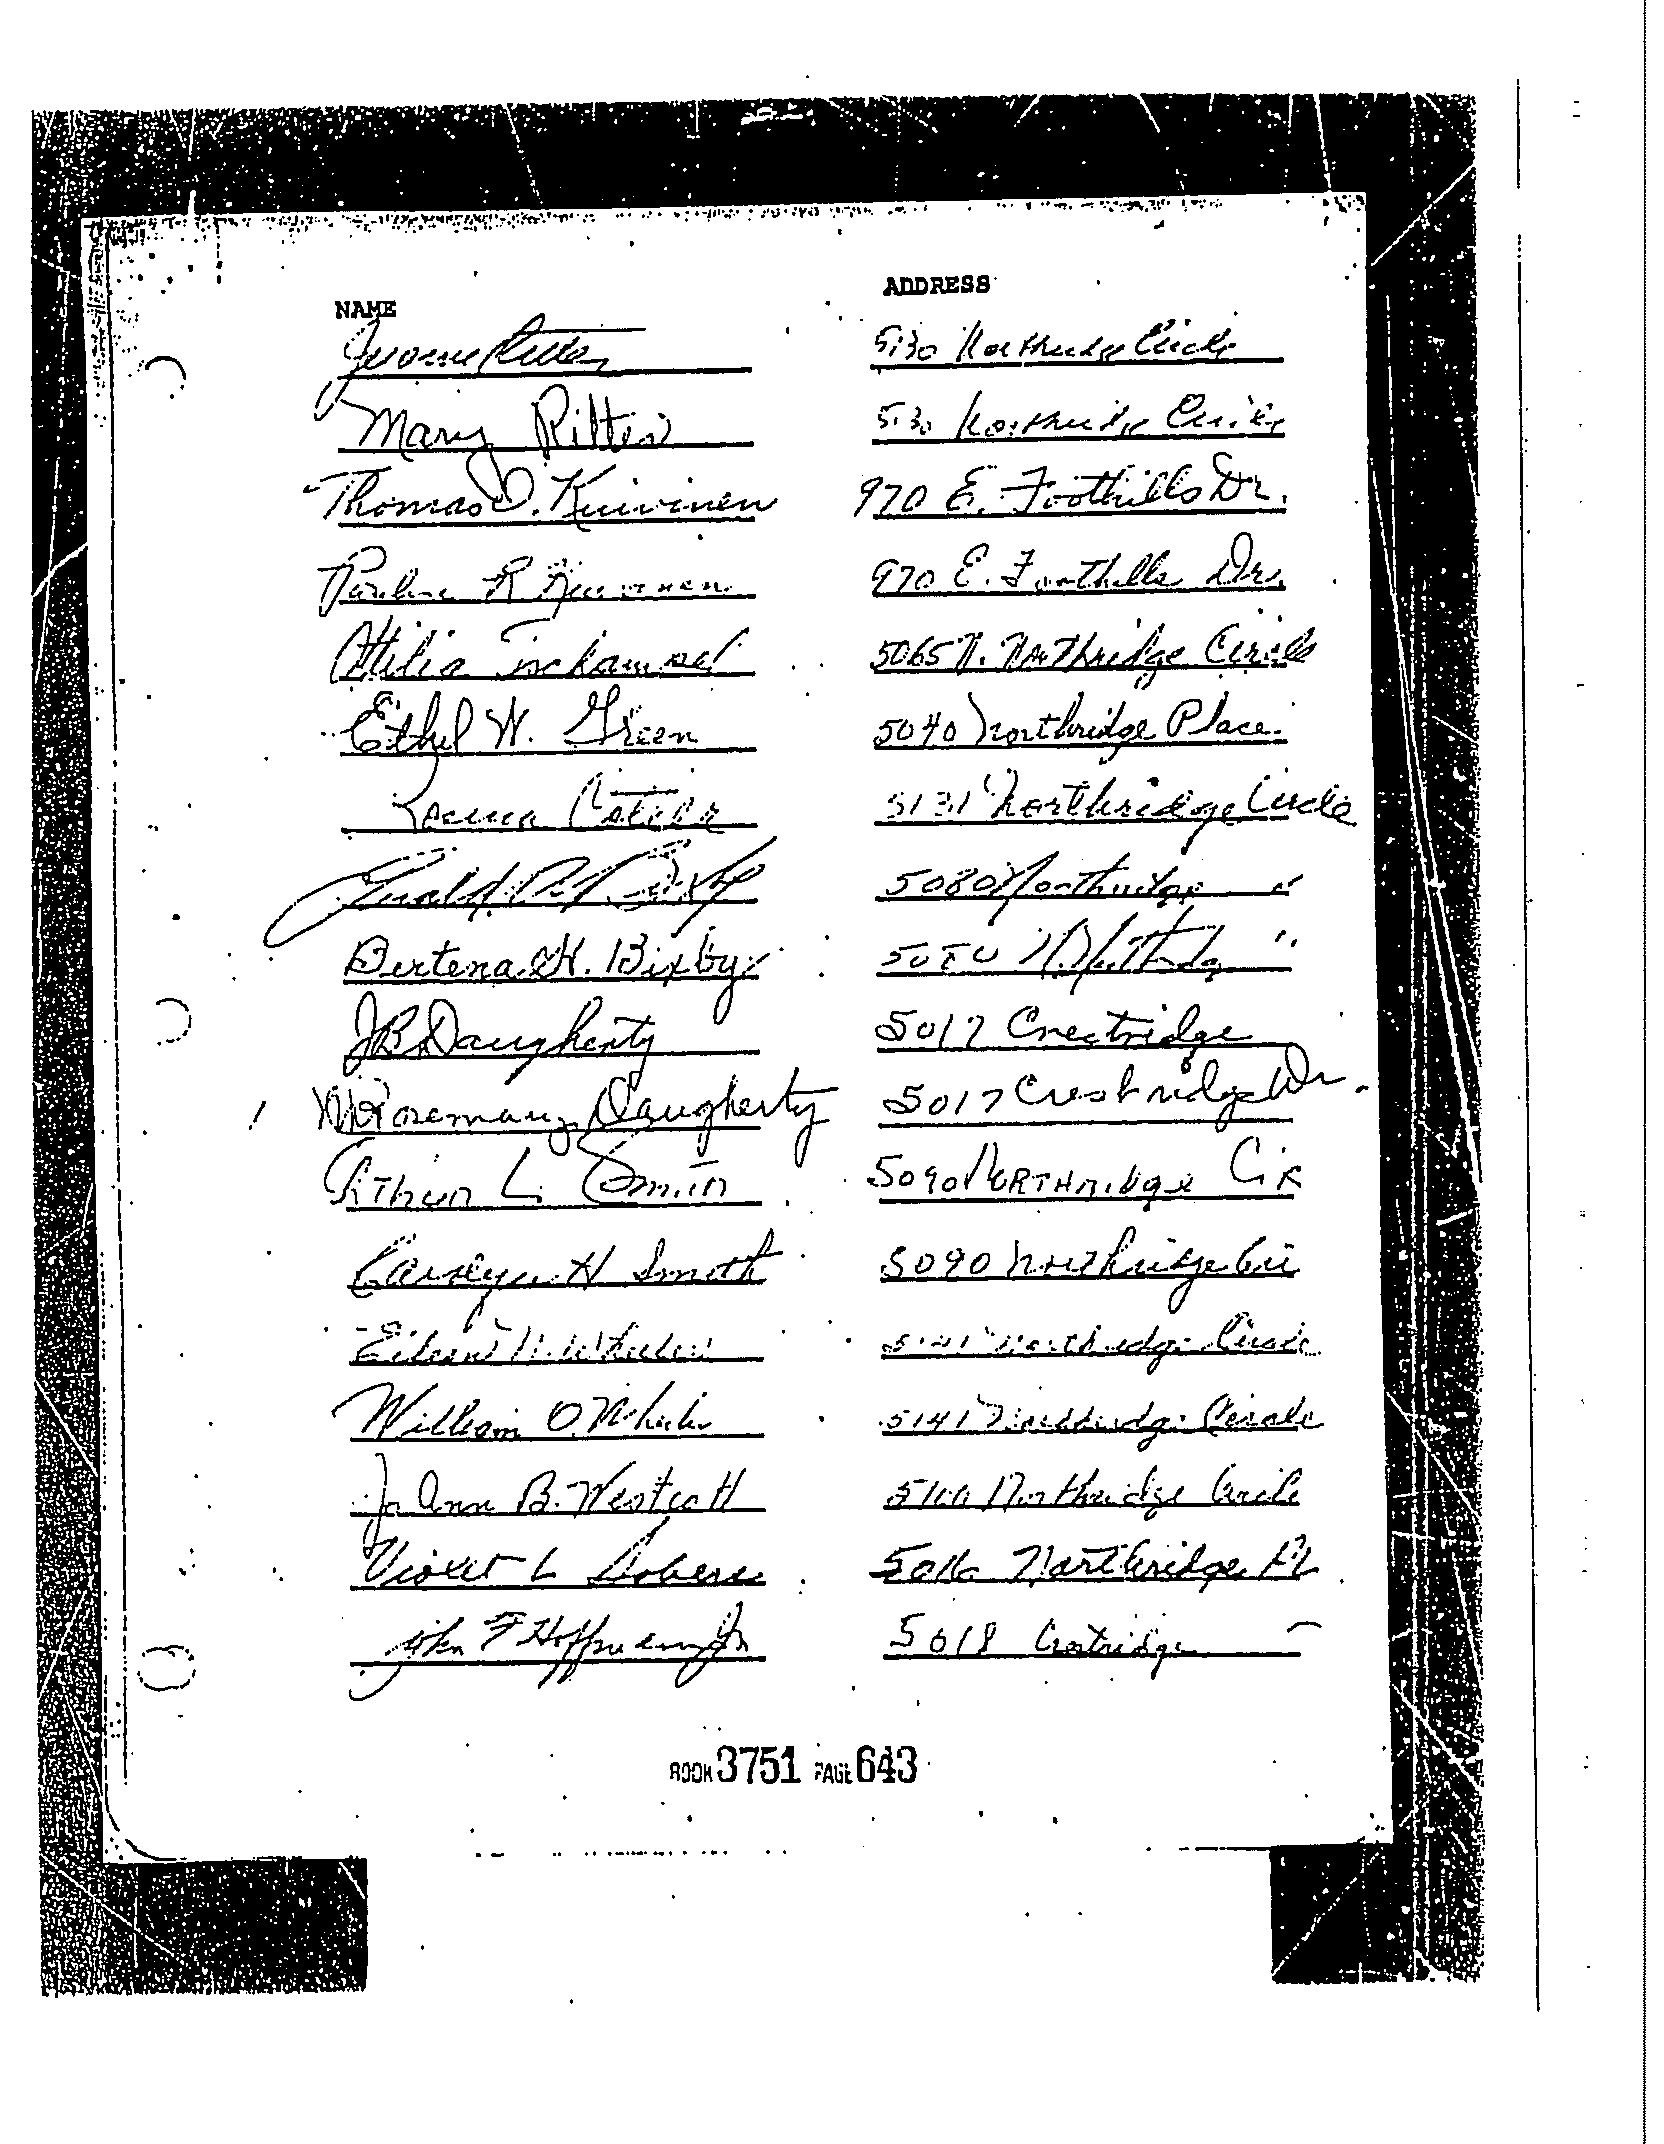 NAME ADDRESS
5130 Northridge Circle
Mary Ritter 5130 Northridge Circle
Thomas O. Kuivinen 970 E. Foothills Dr.
Pauline R Kuivinen 970 E. Foothills Dr.
5065 N. Northridge Circle
Ethel W. Green 5040 Northridge Place
5131 Northridge Circle
Gerald R. Bixby 5080 Northridge "
Bertena H. Bixby 5080 N. Northridge "
JB Daugherty 5017 Crestridge
M Rosemary Daugherty 5017 Crestridge Dr.
Arthur L. Smith 5090 Northridge Cir
Carolyn H Smith 5090 Northridge Cir
Eileen Wheeler 5141 Northridge Circle
William O. Wheeler 5141 Northridge Circle
Jo Ann B. Westcott 5100 Northridge Circle
Violet L Northridge Pl
John F Hoffman Jr 5018 Crestridge
BOOK 3751 PAGE 643